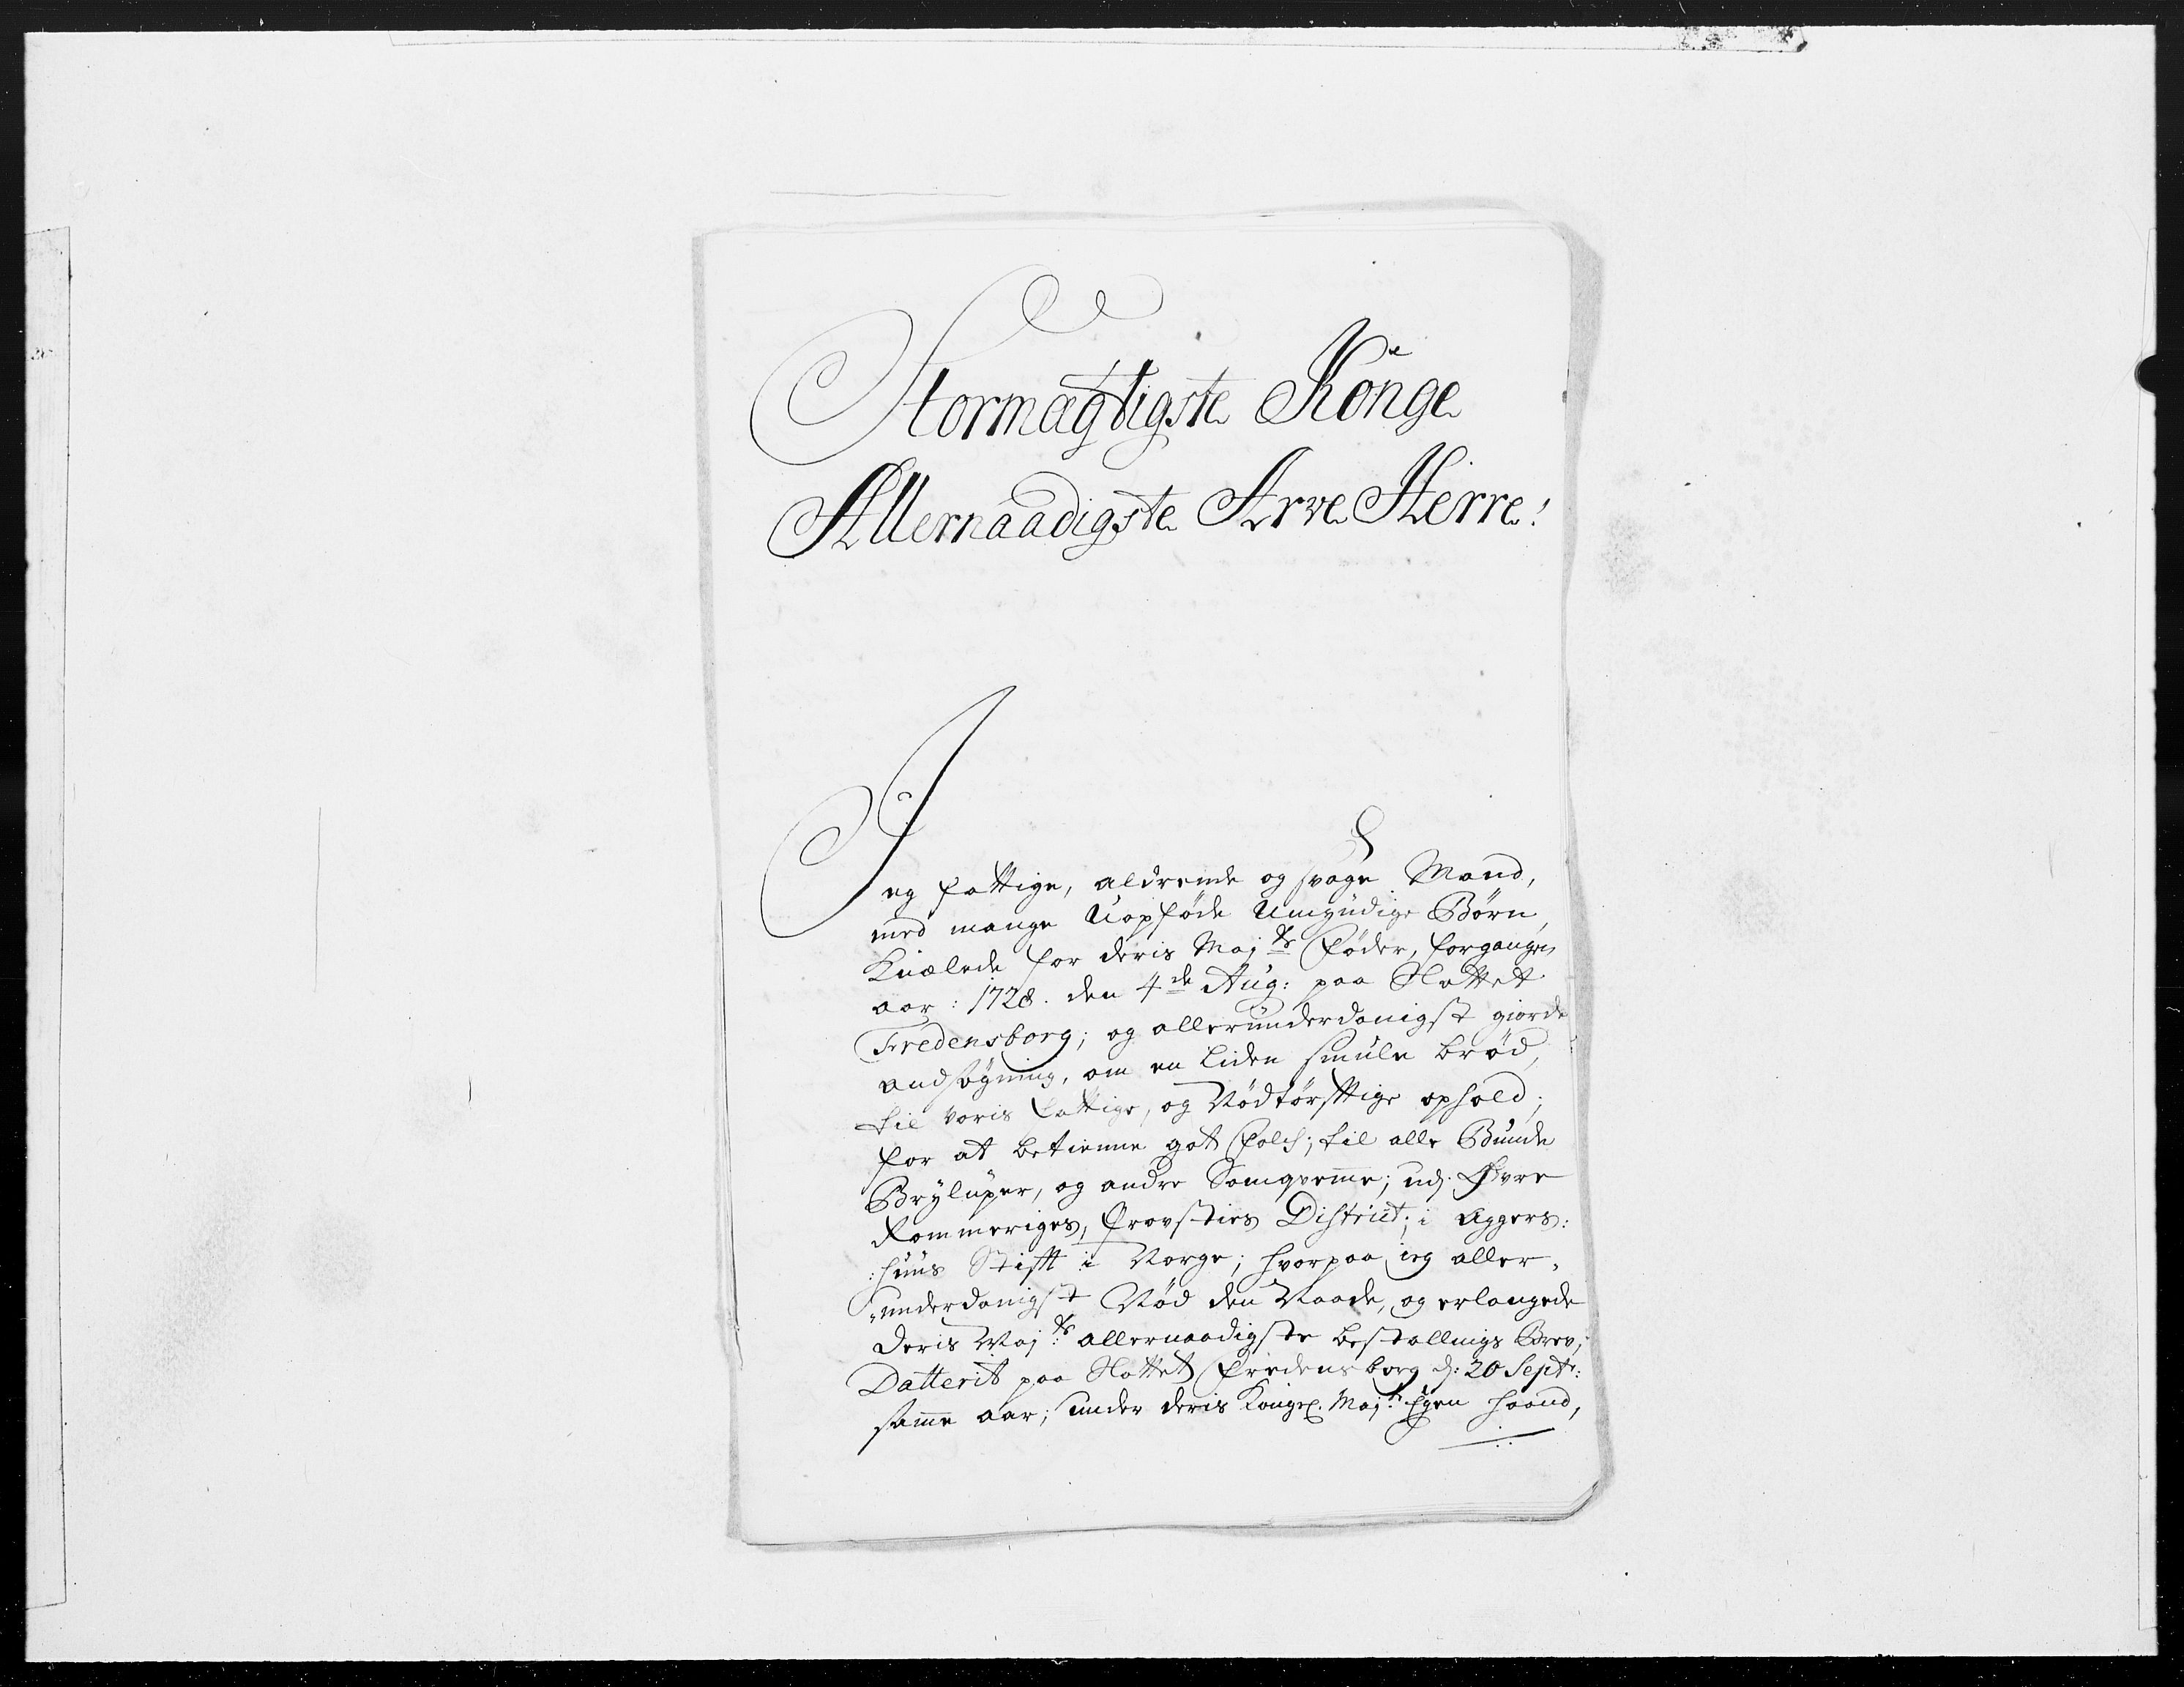 Stormægtigste Konge
Allernaadigste Arve Herre!
Jeg fattige, aldrende og svage Mand,
med mange Uopføde Umÿndige Børn,
Knælede for deris Majts Føder, forgangen
aar: 1728. den 4de Aug: paa Slottet
Fredensborg; og allerunderdanigst giorde
andsøgning, om en liden smule brød,
til voris fattige, og Nødtørfftige ophold;
for at betienne got Folch; til alle Bunde
Brÿluper, og andre Samqvemme; udj Øvre
Rommeriges, Provsties District; i Aggers:
:huus Stifft i Norge; hvorpaa ieg aller„
„underdanigst Nød den Naade, og erlangede
Deris Majts allernaadigste bestallings Brev;
Datterit paa Slottet Fredensborg d: 20 Septr:
samme aar; under deris Kongel. Majts Egen haand,